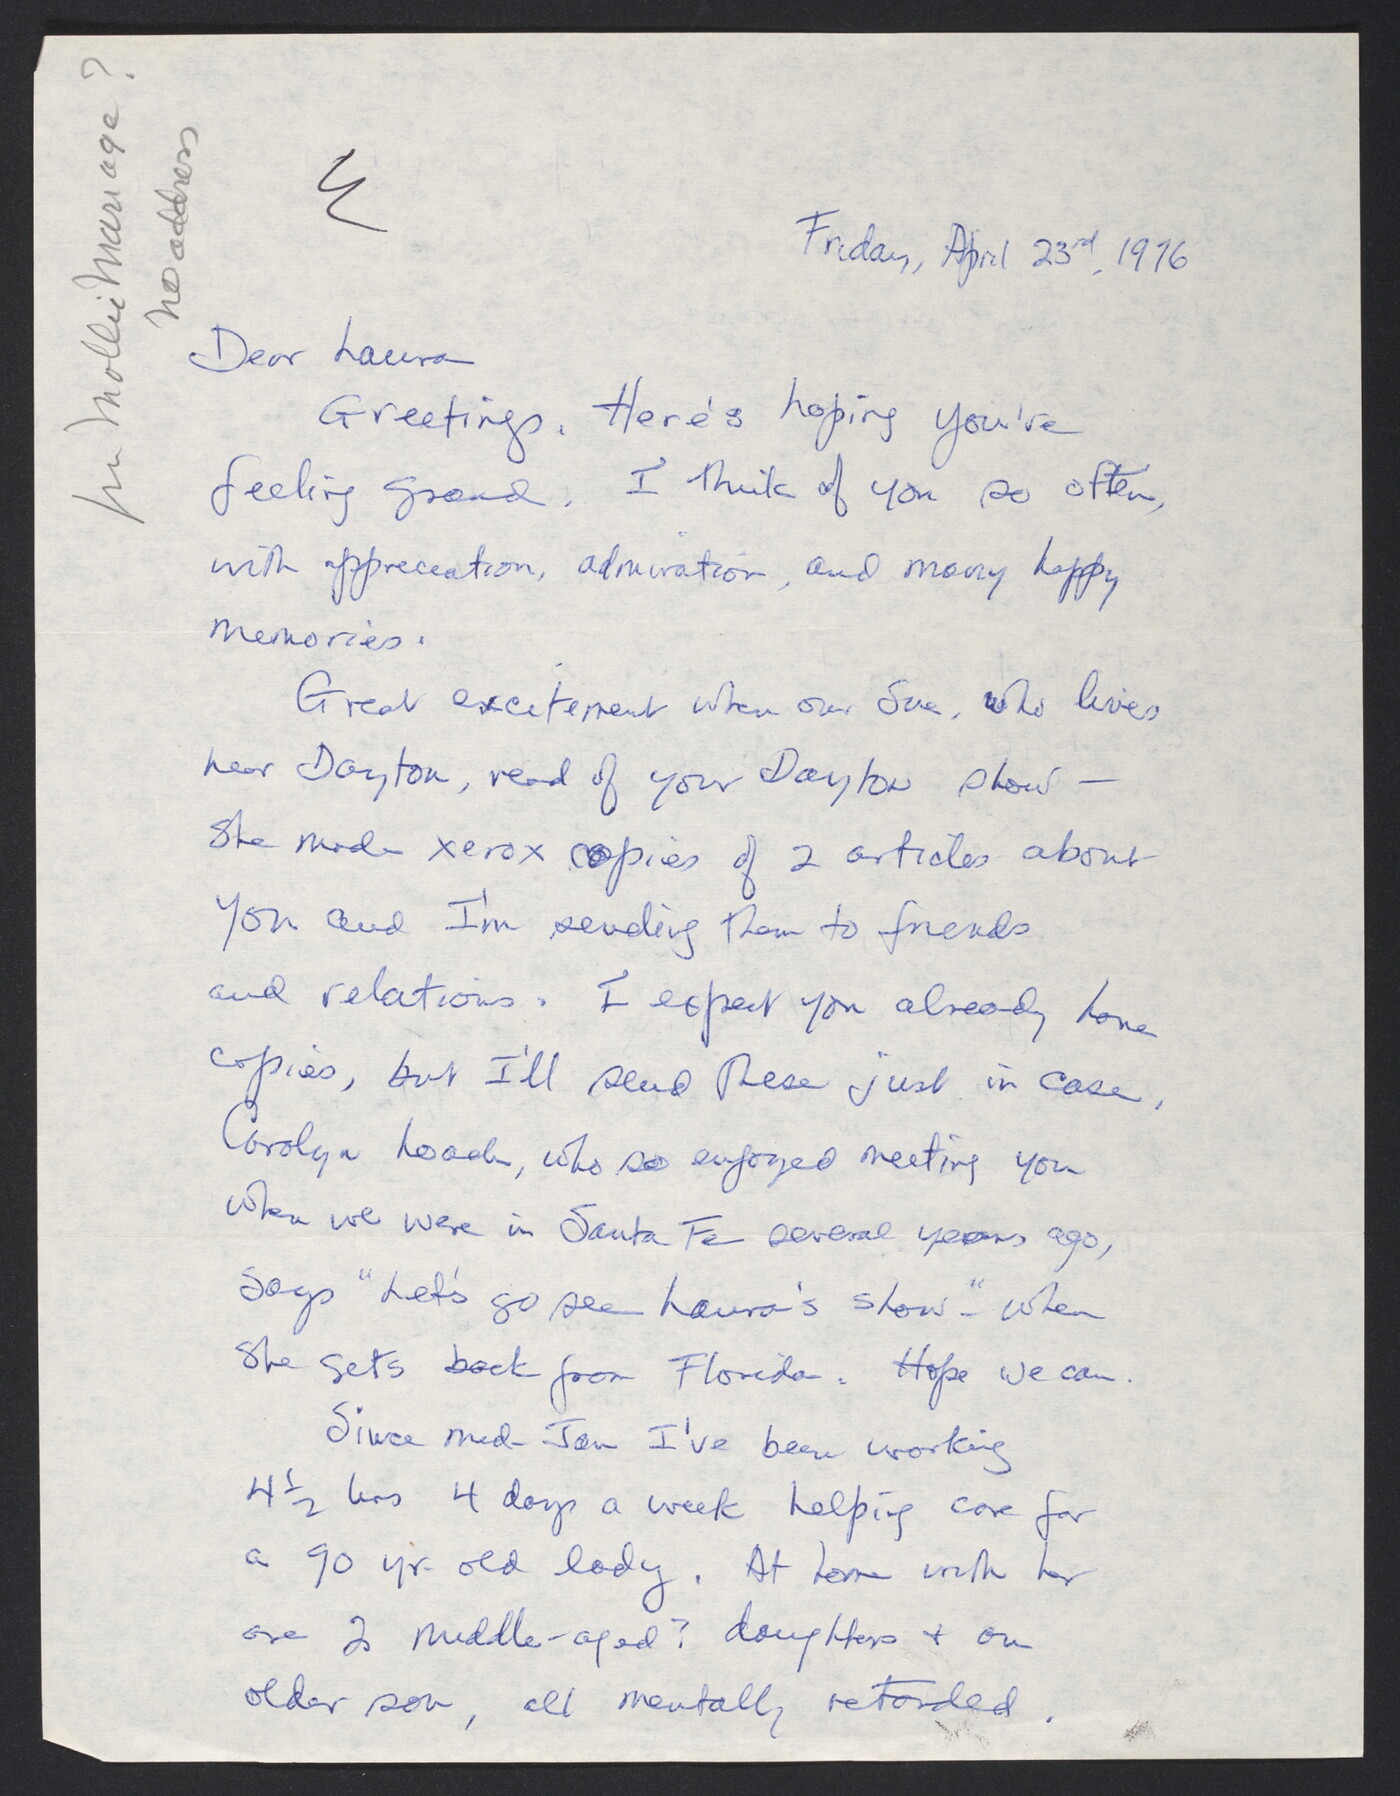 Mollie
no address
Friday, April 23rd, 1976
Dear Laura
Greetings. Here's hoping you're
feeling grand. I think of you so often,
with appreciation, admiration, and many happy
memories.
Great excitement when our Sue, who lives
near Dayton, read of your Dayton show —
She made xerox copies of 2 articles about
you and I'm sending them to friends
and relations. I expect you already have
copies, but I'll send these just in case.
Carolyn, who so enjoyed meeting you
when we were in Santa Fe several years ago,
says "Let's go see Laura's show" - when
she gets back from Florida. Hope we can.
Since mid-Jan I've been working
4½ hrs 4 days a week helping care for
a 90 yr. old lady. At home with her
are 2 middle-aged? daughters + an
older son, all mentally retarded.